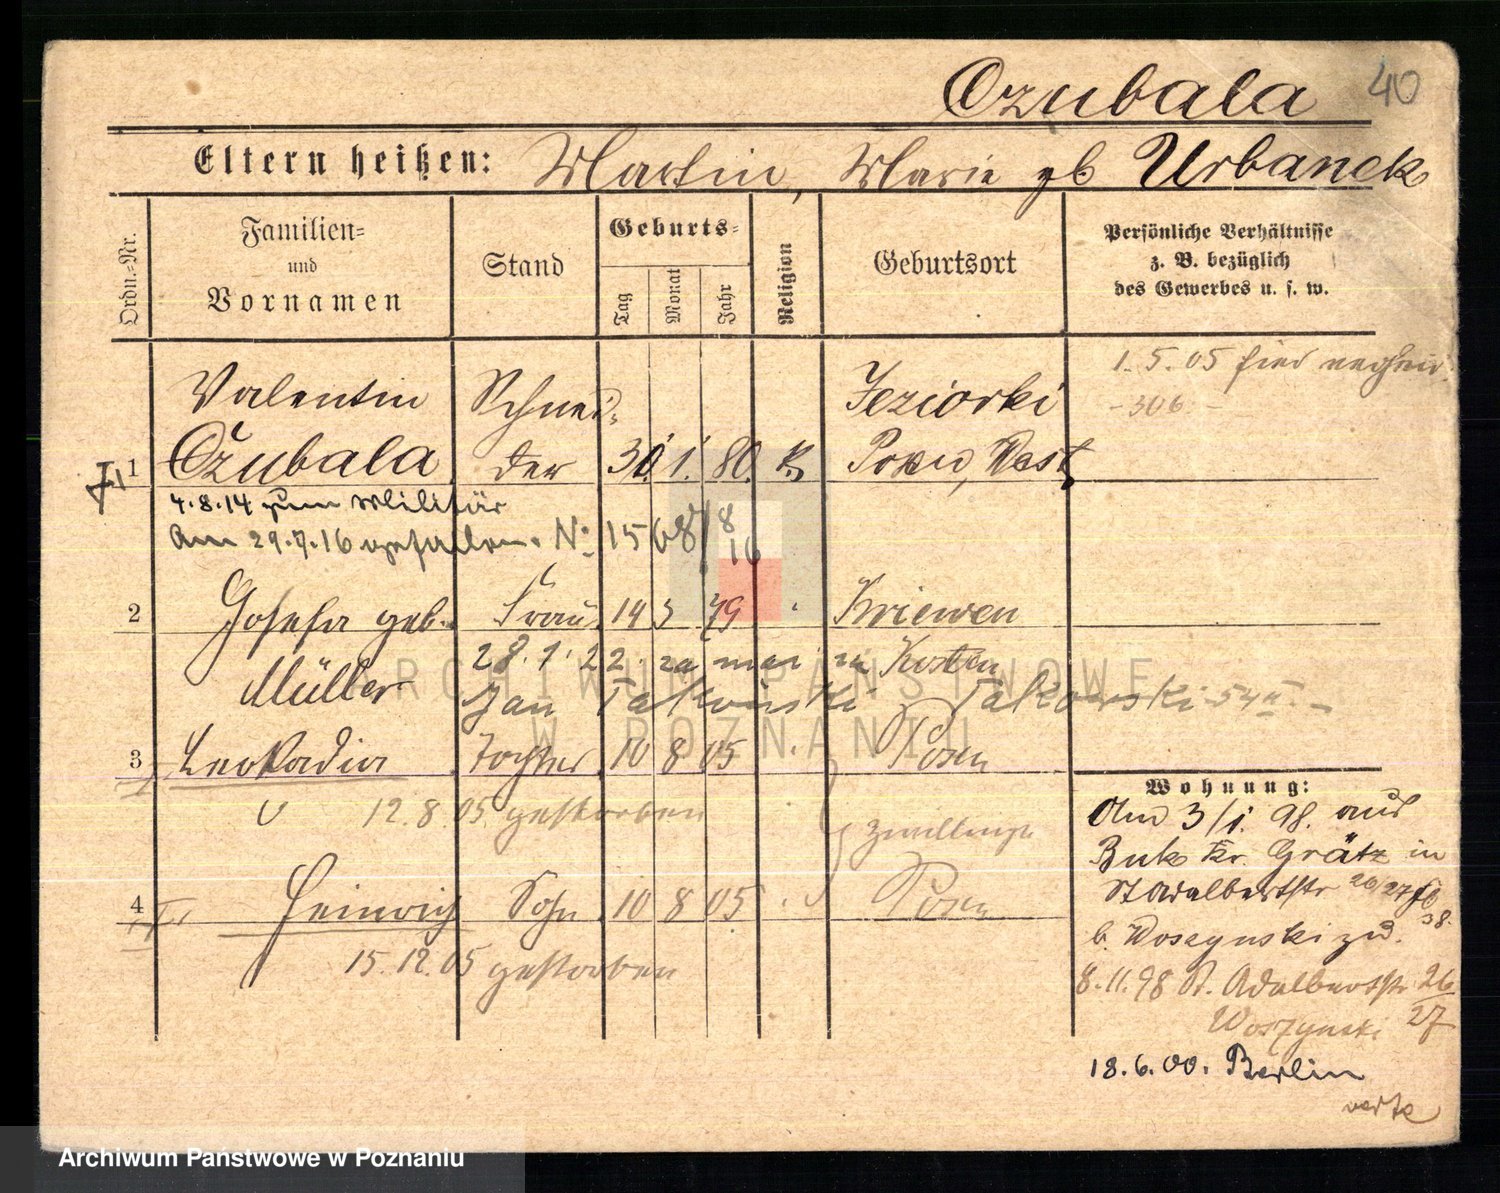 Czubala 40
Eltern heißen: Martin, Marie gb Urbanek
Ordn.-Nr.
Familien-
und
Vornamen
Stand
Geburts-
Tag
Monat
Jahr
Religion
Geburtsort
Persönliche Verhältnisse
z. B. bezüglich
des Gewerbes u. s. w.
1. 5. 05
- 306 -
Valentin Schnei- Jeziorki
1 Czubala der 30. 1. 80. k.
4.8.14 zum Militär
Am 29.7.16 gefallen. No 1568/8 16
2 Josefa geb. Frau 14 3 79 Kriewen
Müller 28.1.22. za mąż
Jan Takowski Takowski
3 Leokadia Tochter 10 8 05 Posen
12.8.05 gestorben
Zwillinge
4 Heinrich Sohn 10 8 05 Posen
15.12.05 gestorben
Wohnung:
3/1. 98. aus
Buk Kr. Grätz in
St Adalbertstr 26/27
b. Woszynski
8.11.98 St. Adalbertstr 26
Woszynski 27
18.6.00. Berlin
verte
ARCHIWUM PAŃSTWOWE
W POZNANIU
Archiwum Państwowe w Poznaniu